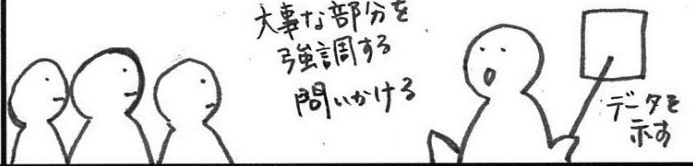 大事な部分を
強調する
問いかける
データを
示す